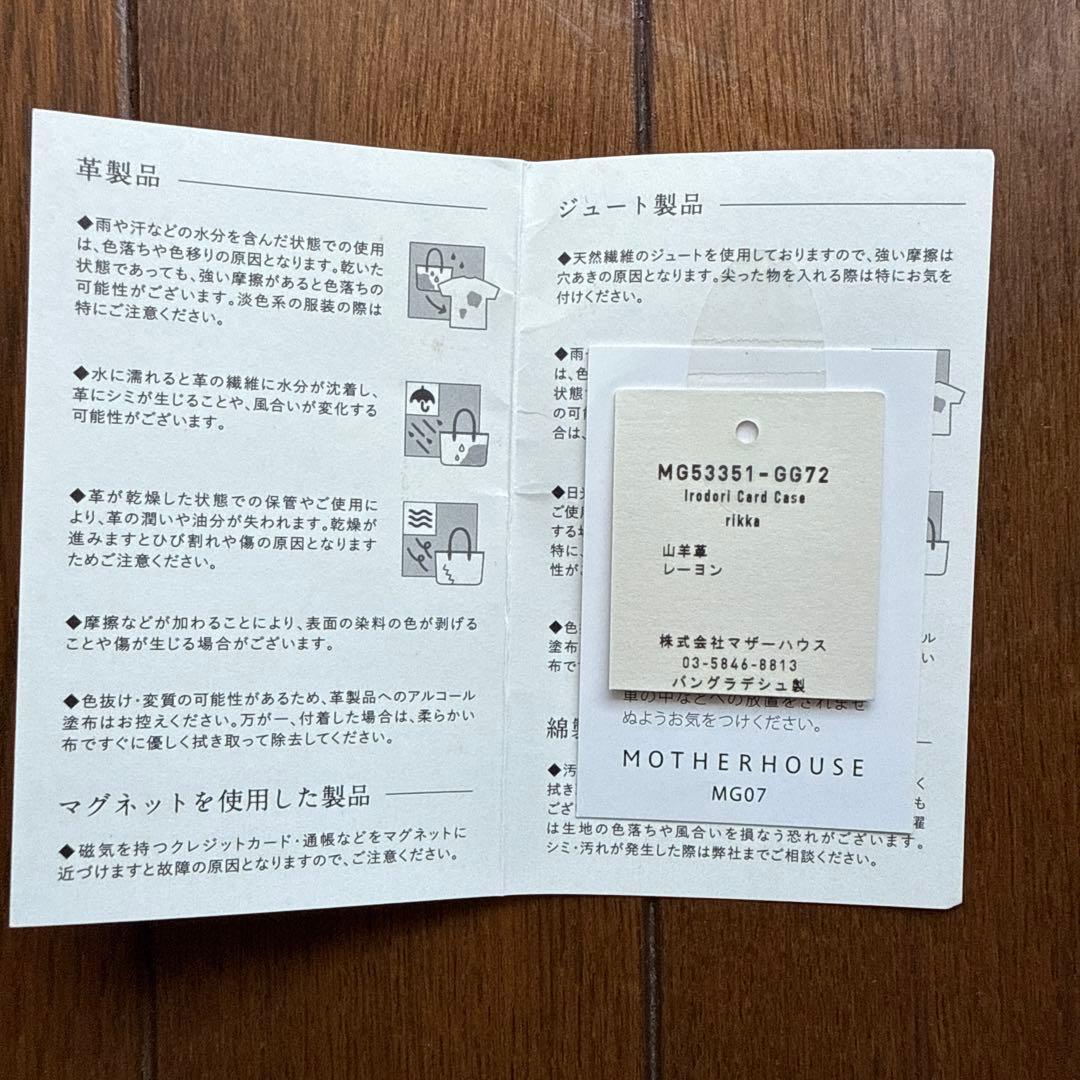 革製品
◆雨や汗などの水分を含んだ状態での使用
は、色落ちや色移りの原因となります。乾いた
状態であっても、強い摩擦があると色落ちの
可能性がございます。淡色系の服装の際は
特にご注意ください。
◆水に濡れると革の繊維に水分が沈着し、
革にシミが生じることや、風合いが変化する
可能性がございます。
◆革が乾燥した状態での保管やご使用に
より、革の潤いや油分が失われます。乾燥が
進みますとひび割れや傷の原因となります
ためご注意ください。
◆摩擦などが加わることにより、表面の染料の色が剥げる
ことや傷が生じる場合がございます。
◆色抜け・変質の可能性があるため、革製品へのアルコール
塗布はお控えください。万が一、付着した場合は、柔らかい
布ですぐに優しく拭き取って除去してください。
マグネットを使用した製品
◆磁気を持つクレジットカード・通帳などをマグネットに
近づけますと故障の原因となりますので、ご注意ください。
ジュート製品
◆天然繊維のジュートを使用しておりますので、強い摩擦は
穴あきの原因となります。尖った物を入れる際は特にお気を
付けください。
◆雨
は、色
状態
の可
合は、
◆日
ご使
する
特に、
性が
◆色
塗布
布で
MG53351-GG72
Irodori Card Case
rikka
山羊革
レーヨン
株式会社マザーハウス
03-5846-8813
バングラデシュ製
車の中などへの放置をされませ
ぬようお気をつけください。
MOTHERHOUSE
MG07
綿
◆汚
拭き
ござ
は生地の色落ちや風合いを損なう恐れがございます。
シミ・汚れが発生した際は弊社までご相談ください。